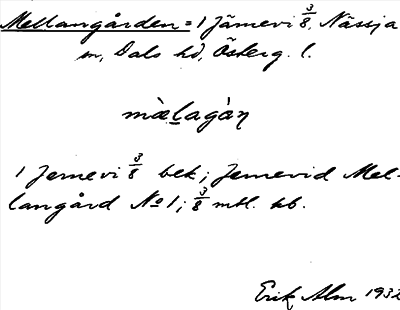 Mellangården = 1 Jämevi 3/8, Nässja
sn, Dals hd, Österg. l.
mæ̀lagàn
1 Jemevi 3/8 bek; Jemevid Mel-
langård No 1; 3/8 mtl. kb.
Erik Alm 1932